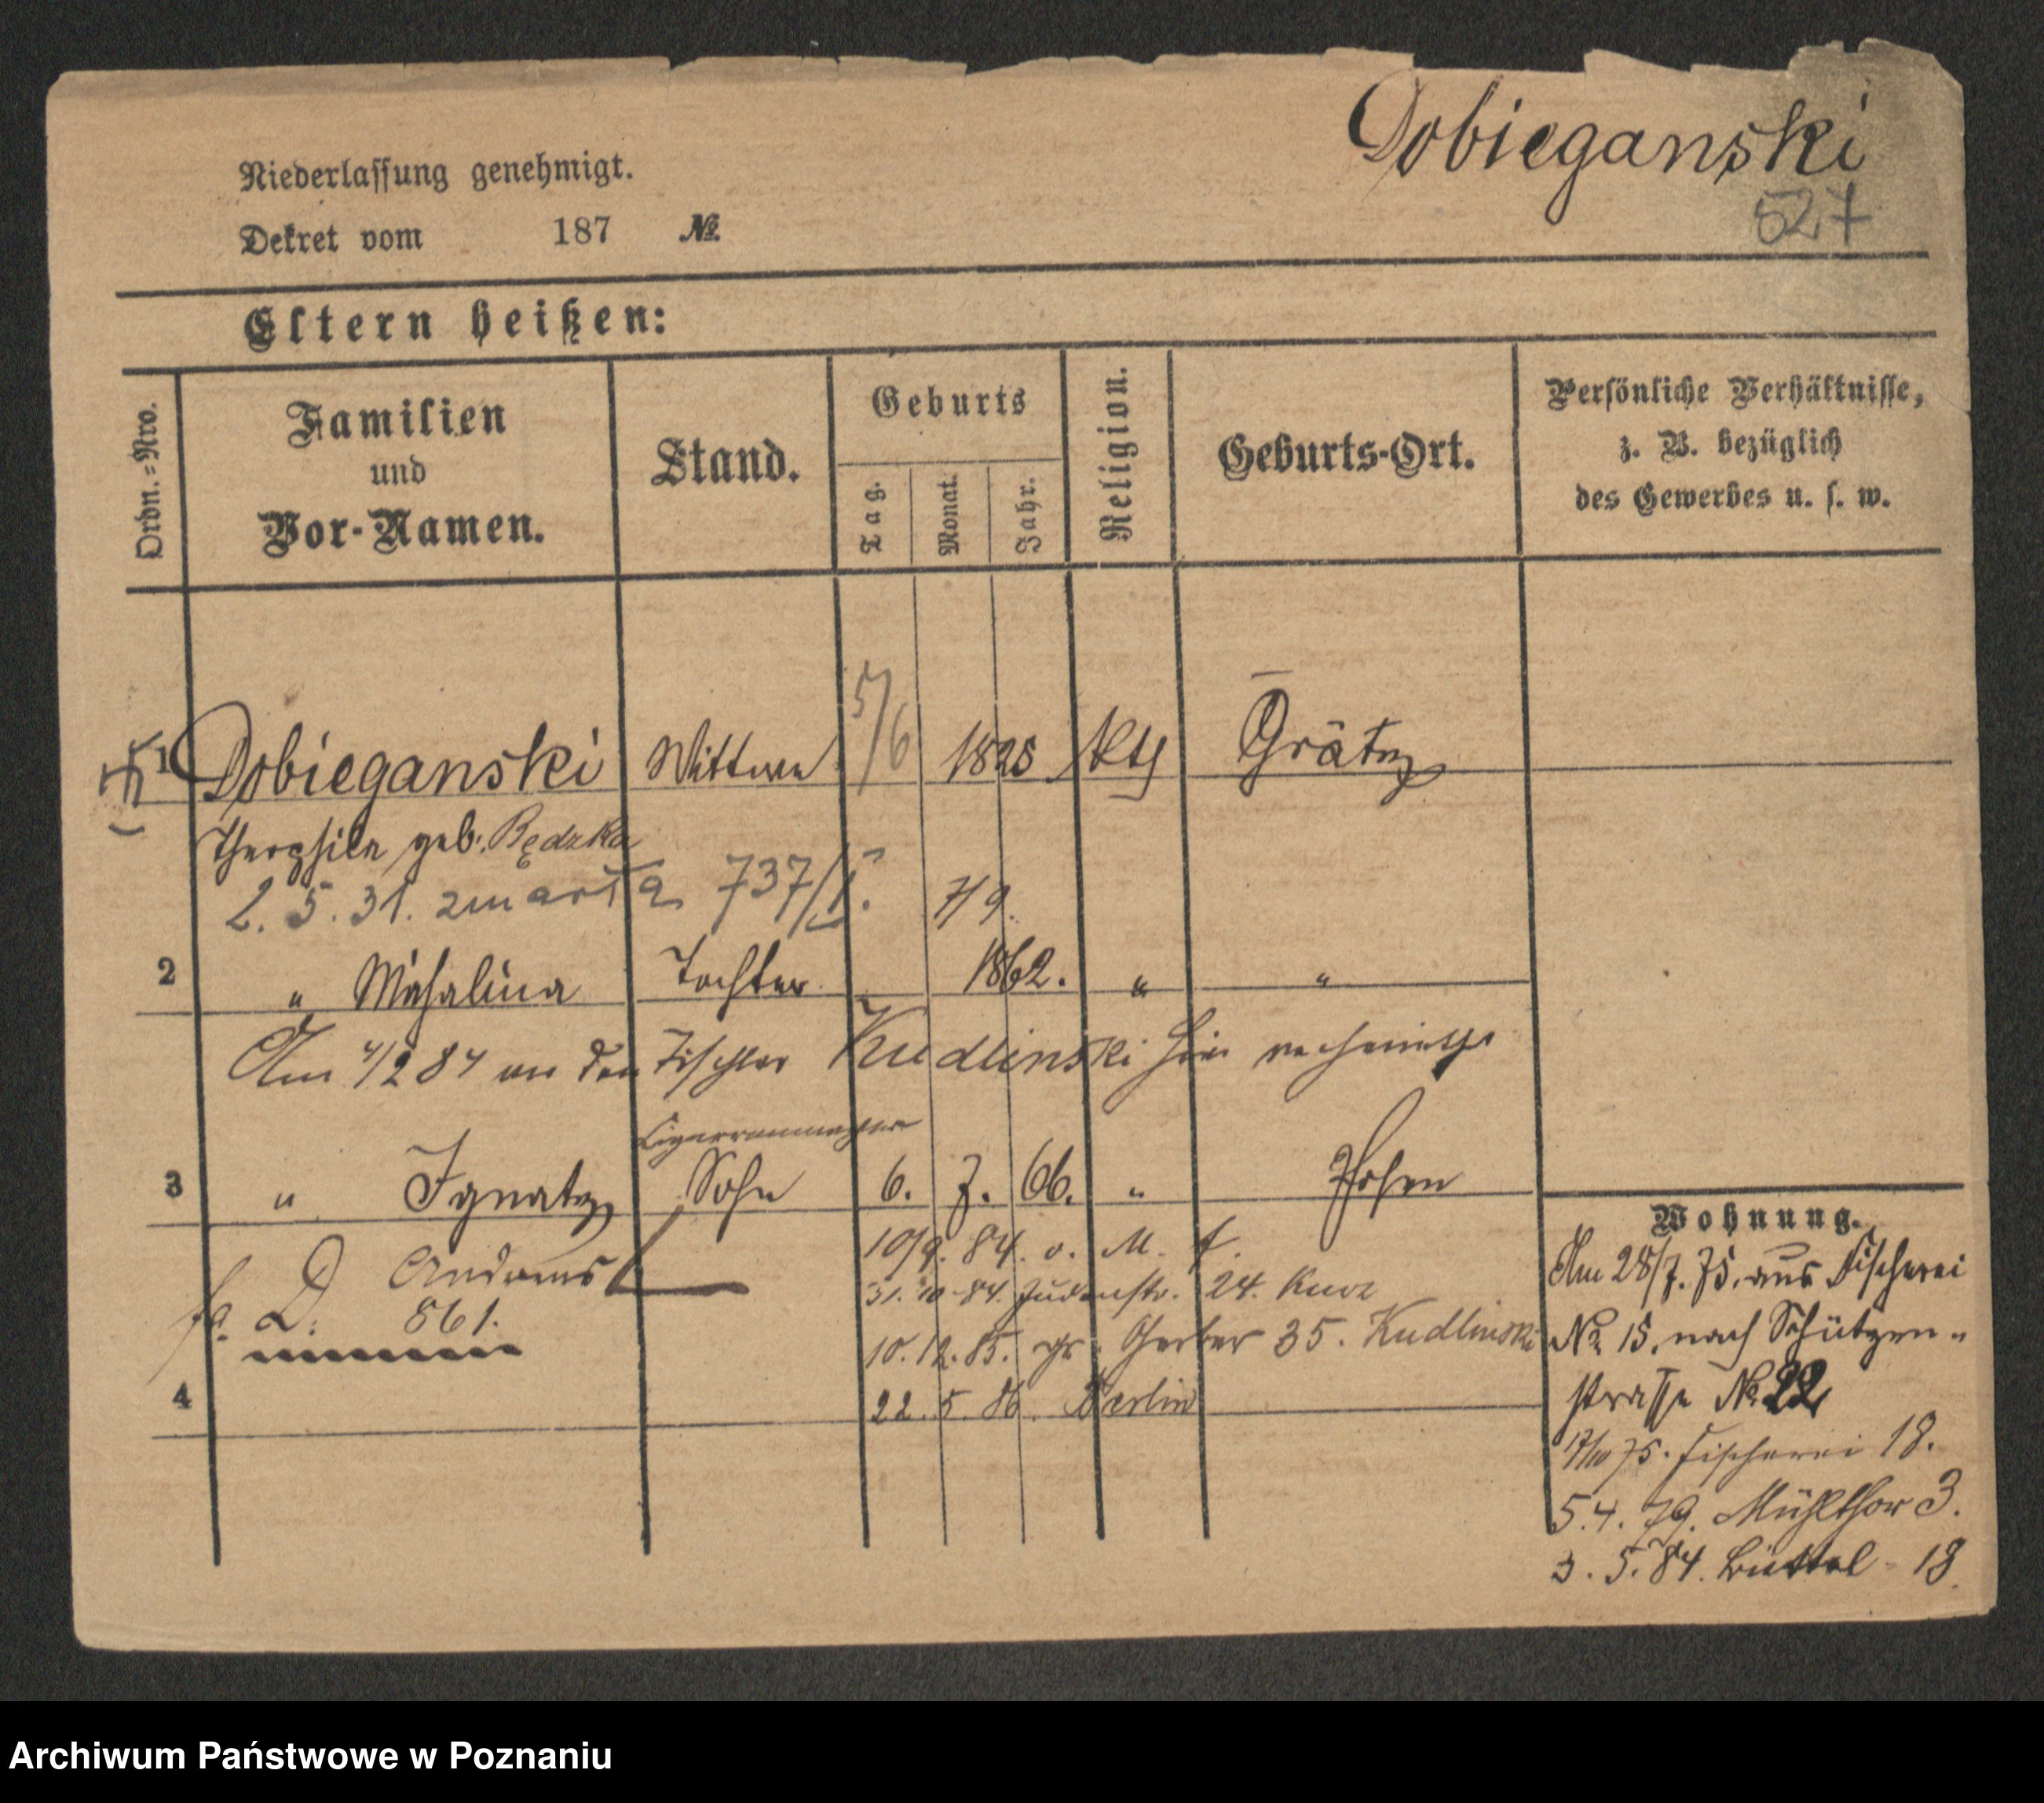 Dobieganski
527
Niederlassung genehmigt.
Dekret vom 187 №
Eltern heißen:
Ordn.=Nro.
Familien und Vor-Namen.
Stand.
Geburts
Tag.
Monat.
Jahr.
Religion.
Geburts-Ort.
Persönliche Verhältnisse,
z. B. bezüglich
des Gewerbes u. s. w.
1 Dobieganski Wittwe 5/6 1828 kth Grätz
Theophila geb. Będzka
2. 5. 31. zmarła 737/I.
7/9.
2 " Michalina Tochter 1862. " "
Am 4/2 84 an den Tischler Kudlinski hier
Cigarrenmacher
3 " Ignatz Sohn 6. 7. 66. " Posen
10/9. 84. v. M.
D Andreas
31. 10. 84. Judenstr. 24.
D. 861.
10. 12. 85. gr. Gerber 35. Kudlinski
4
22. 5. 86. Berlin
Wohnung.
Am 28/7. 75. aus Fischerei
№ 15. nach Schützen-
strasse № 22
17/10 75. Fischerei 18.
5. 4. 79. Mühlthor 3.
3. 5. 84. Büttel 18
Archiwum Państwowe w Poznaniu